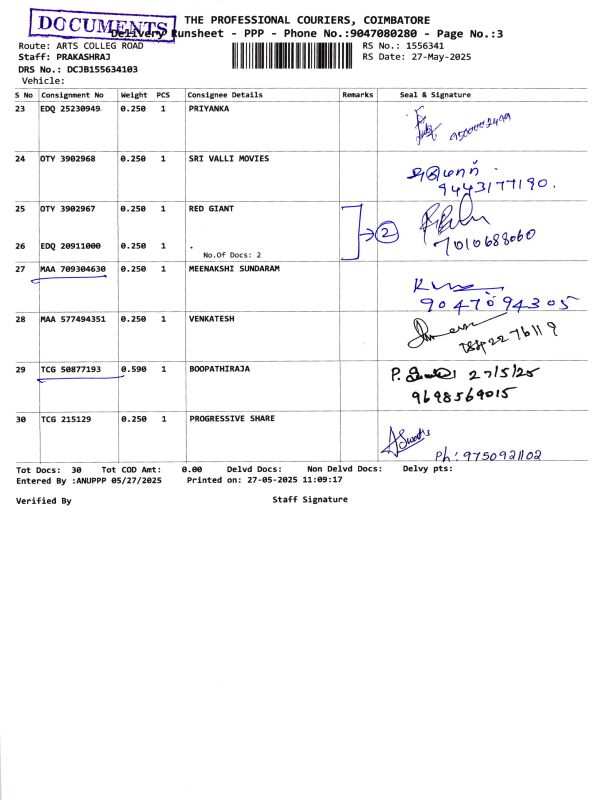 DOCUMENTS
THE PROFESSIONAL COURIERS, COIMBATORE
Delivery Runsheet - PPP - Phone No.:9047080280 - Page No.:3
Route: ARTS COLLEG ROAD
RS No.: 1556341
Staff: PRAKASHRAJ
RS Date: 27-May-2025
DRS No.: DCJB155634103
Vehicle:
S No Consignment No Weight PCS Consignee Details Remarks Seal & Signature
23 EDQ 25230949 0.250 1 PRIYANKA
24 OTY 3902968 0.250 1 SRI VALLI MOVIES
9443177190.
25 OTY 3902967 0.250 1 RED GIANT
2
7010688060
26 EDQ 20911000 0.250 1 .
No.Of Docs: 2
27 MAA 709304630 0.250 1 MEENAKSHI SUNDARAM
9047094305
28 MAA 577494351 0.250 1 VENKATESH
29 TCG 50877193 0.590 1 BOOPATHIRAJA
P. 27/5/25
9698569015
30 TCG 215129 0.250 1 PROGRESSIVE SHARE
Ph: 9750921102
Tot Docs: 30 Tot COD Amt: 0.00 Delvd Docs: Non Delvd Docs: Delvy pts:
Entered By :ANUPPP 05/27/2025 Printed on: 27-05-2025 11:09:17
Verified By Staff Signature